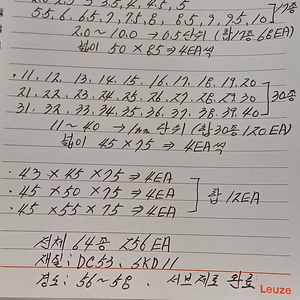 2.0 2.5 3 3.5, 4, 4.5, 5
5.5, 6, 6.5, 7, 7.5, 8, 8.5, 9, 9.5, 10 17종
2.0 ~ 10.0 → 0.5단위 (합 17종 68EA)
넓이 50 × 85 ⇒ 4EA씩
· 11, 12, 13, 14, 15, 16, 17, 18, 19, 20
21, 22, 23, 24, 25, 26, 27, 28, 29, 30 30종
31, 32, 33, 34, 35, 36, 37, 38, 39, 40
11 ~ 40 → 1mm 단위 (합 30종 120EA)
넓이 45 × 75 ⇒ 4EA씩
· 43 × 45 × 75 ⇒ 4EA
· 45 × 50 × 75 ⇒ 4EA 합 12EA
· 45 × 55 × 75 ⇒ 4EA
전체 64종 256EA
재질; DC53, SKD11
경도; 56 ~ 58. 서브제로 완료
Leuze